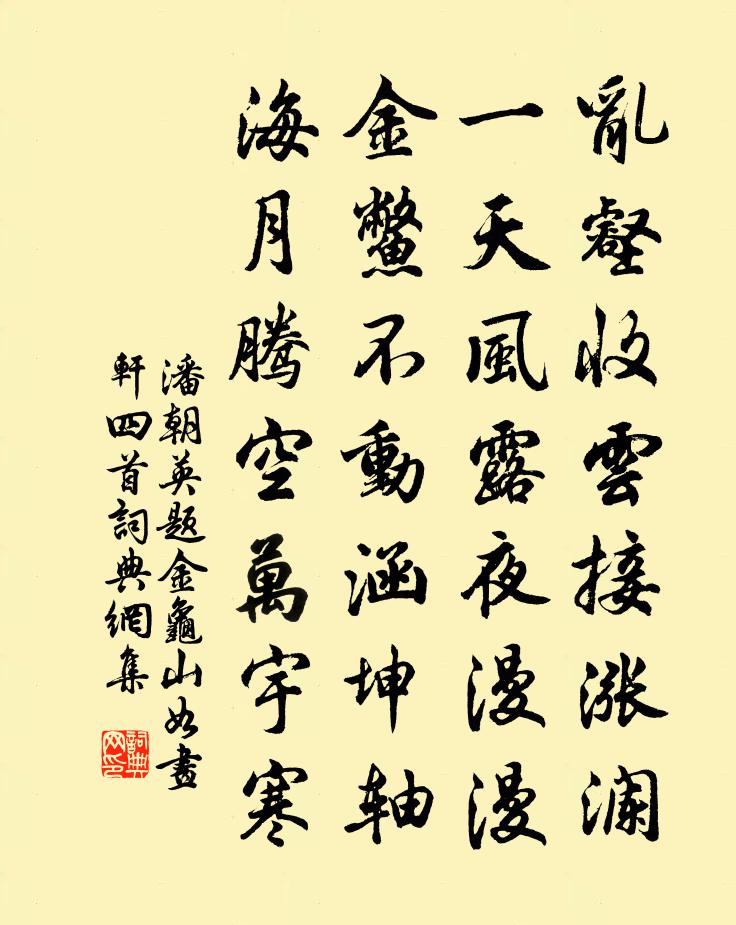 亂壑收雲接漲澜
一天風露夜漫漫
金鱉不動涵坤軸
海月腾空萬宇寒
潘朝英题金龜山如畫
軒四首詞典網集
詞典
网印